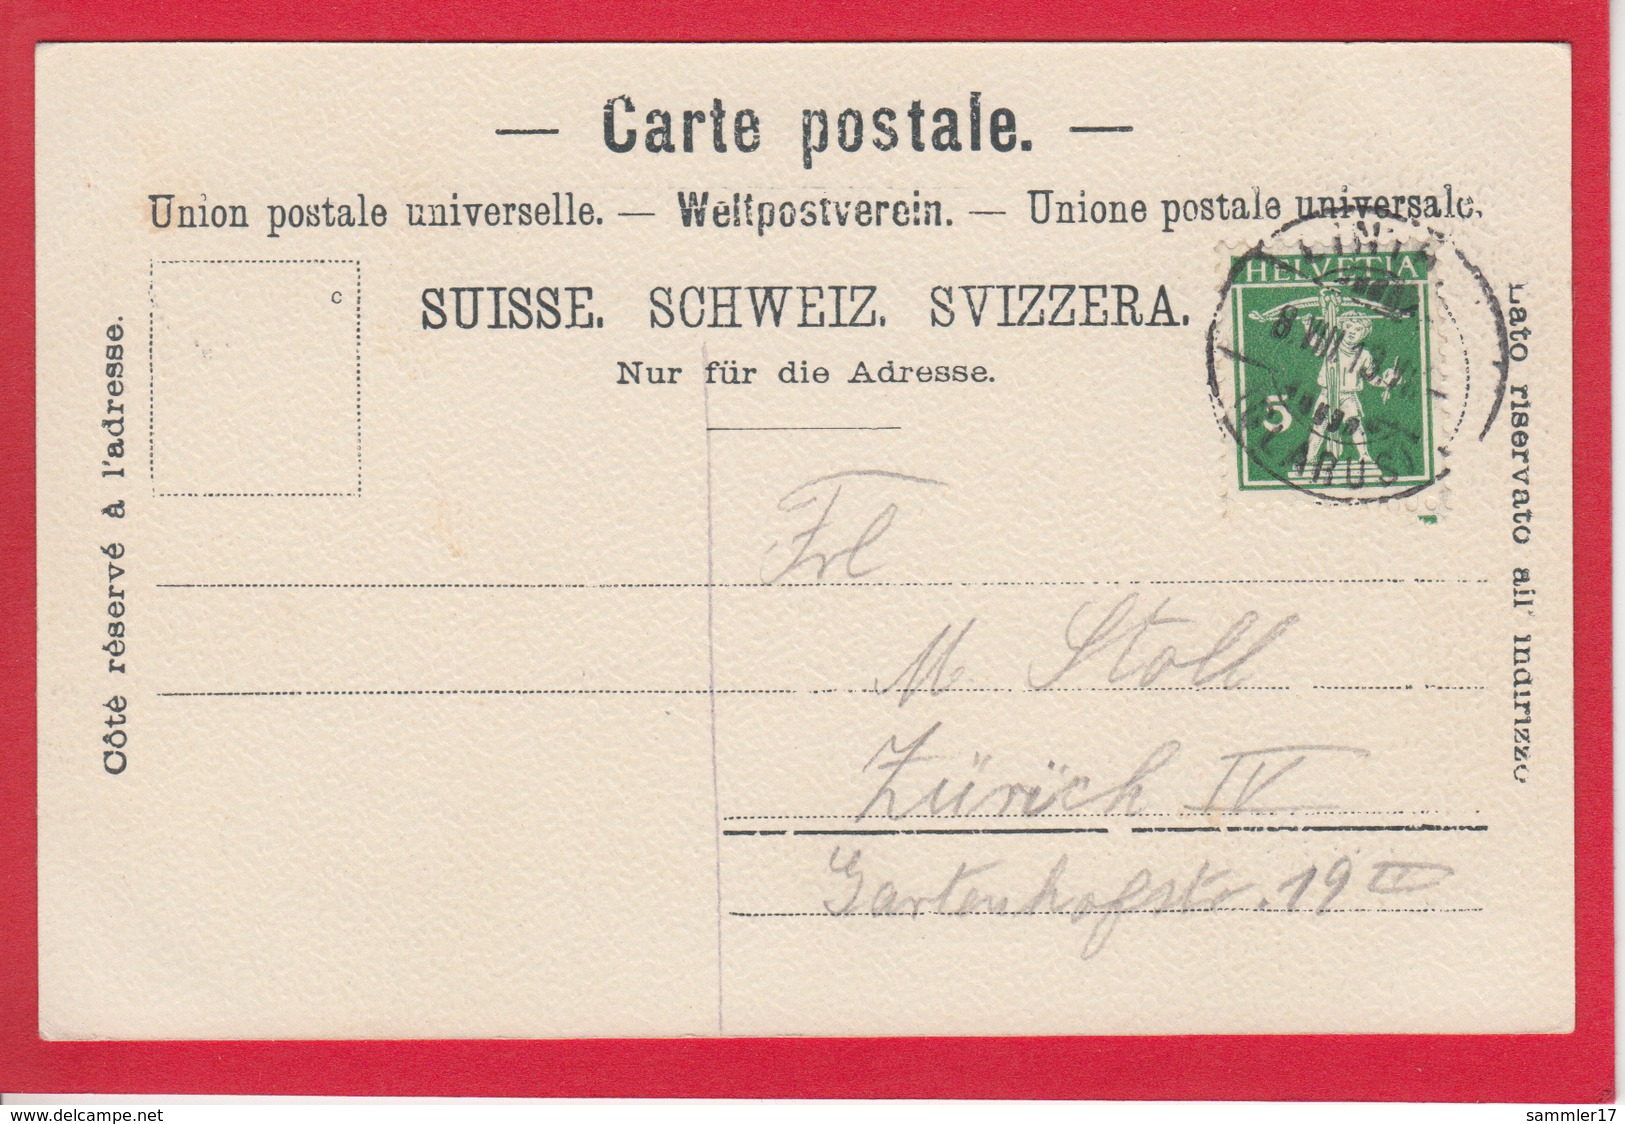 — Carte postale. —
Union postale universelle. — Weltpostverein. — Unione postale universale.
c
SUISSE. SCHWEIZ. SVIZZERA.
Nur für die Adresse.
Côté réservé à l'adresse.
Lato riservato all' indirizzo
HELVETIA
5
LINTH
8.VIII.13.
GLARUS
Frl
M. Stoll
Zürich IV
Gartenhofstr. 19 II
www.delcampe.net
sammler17